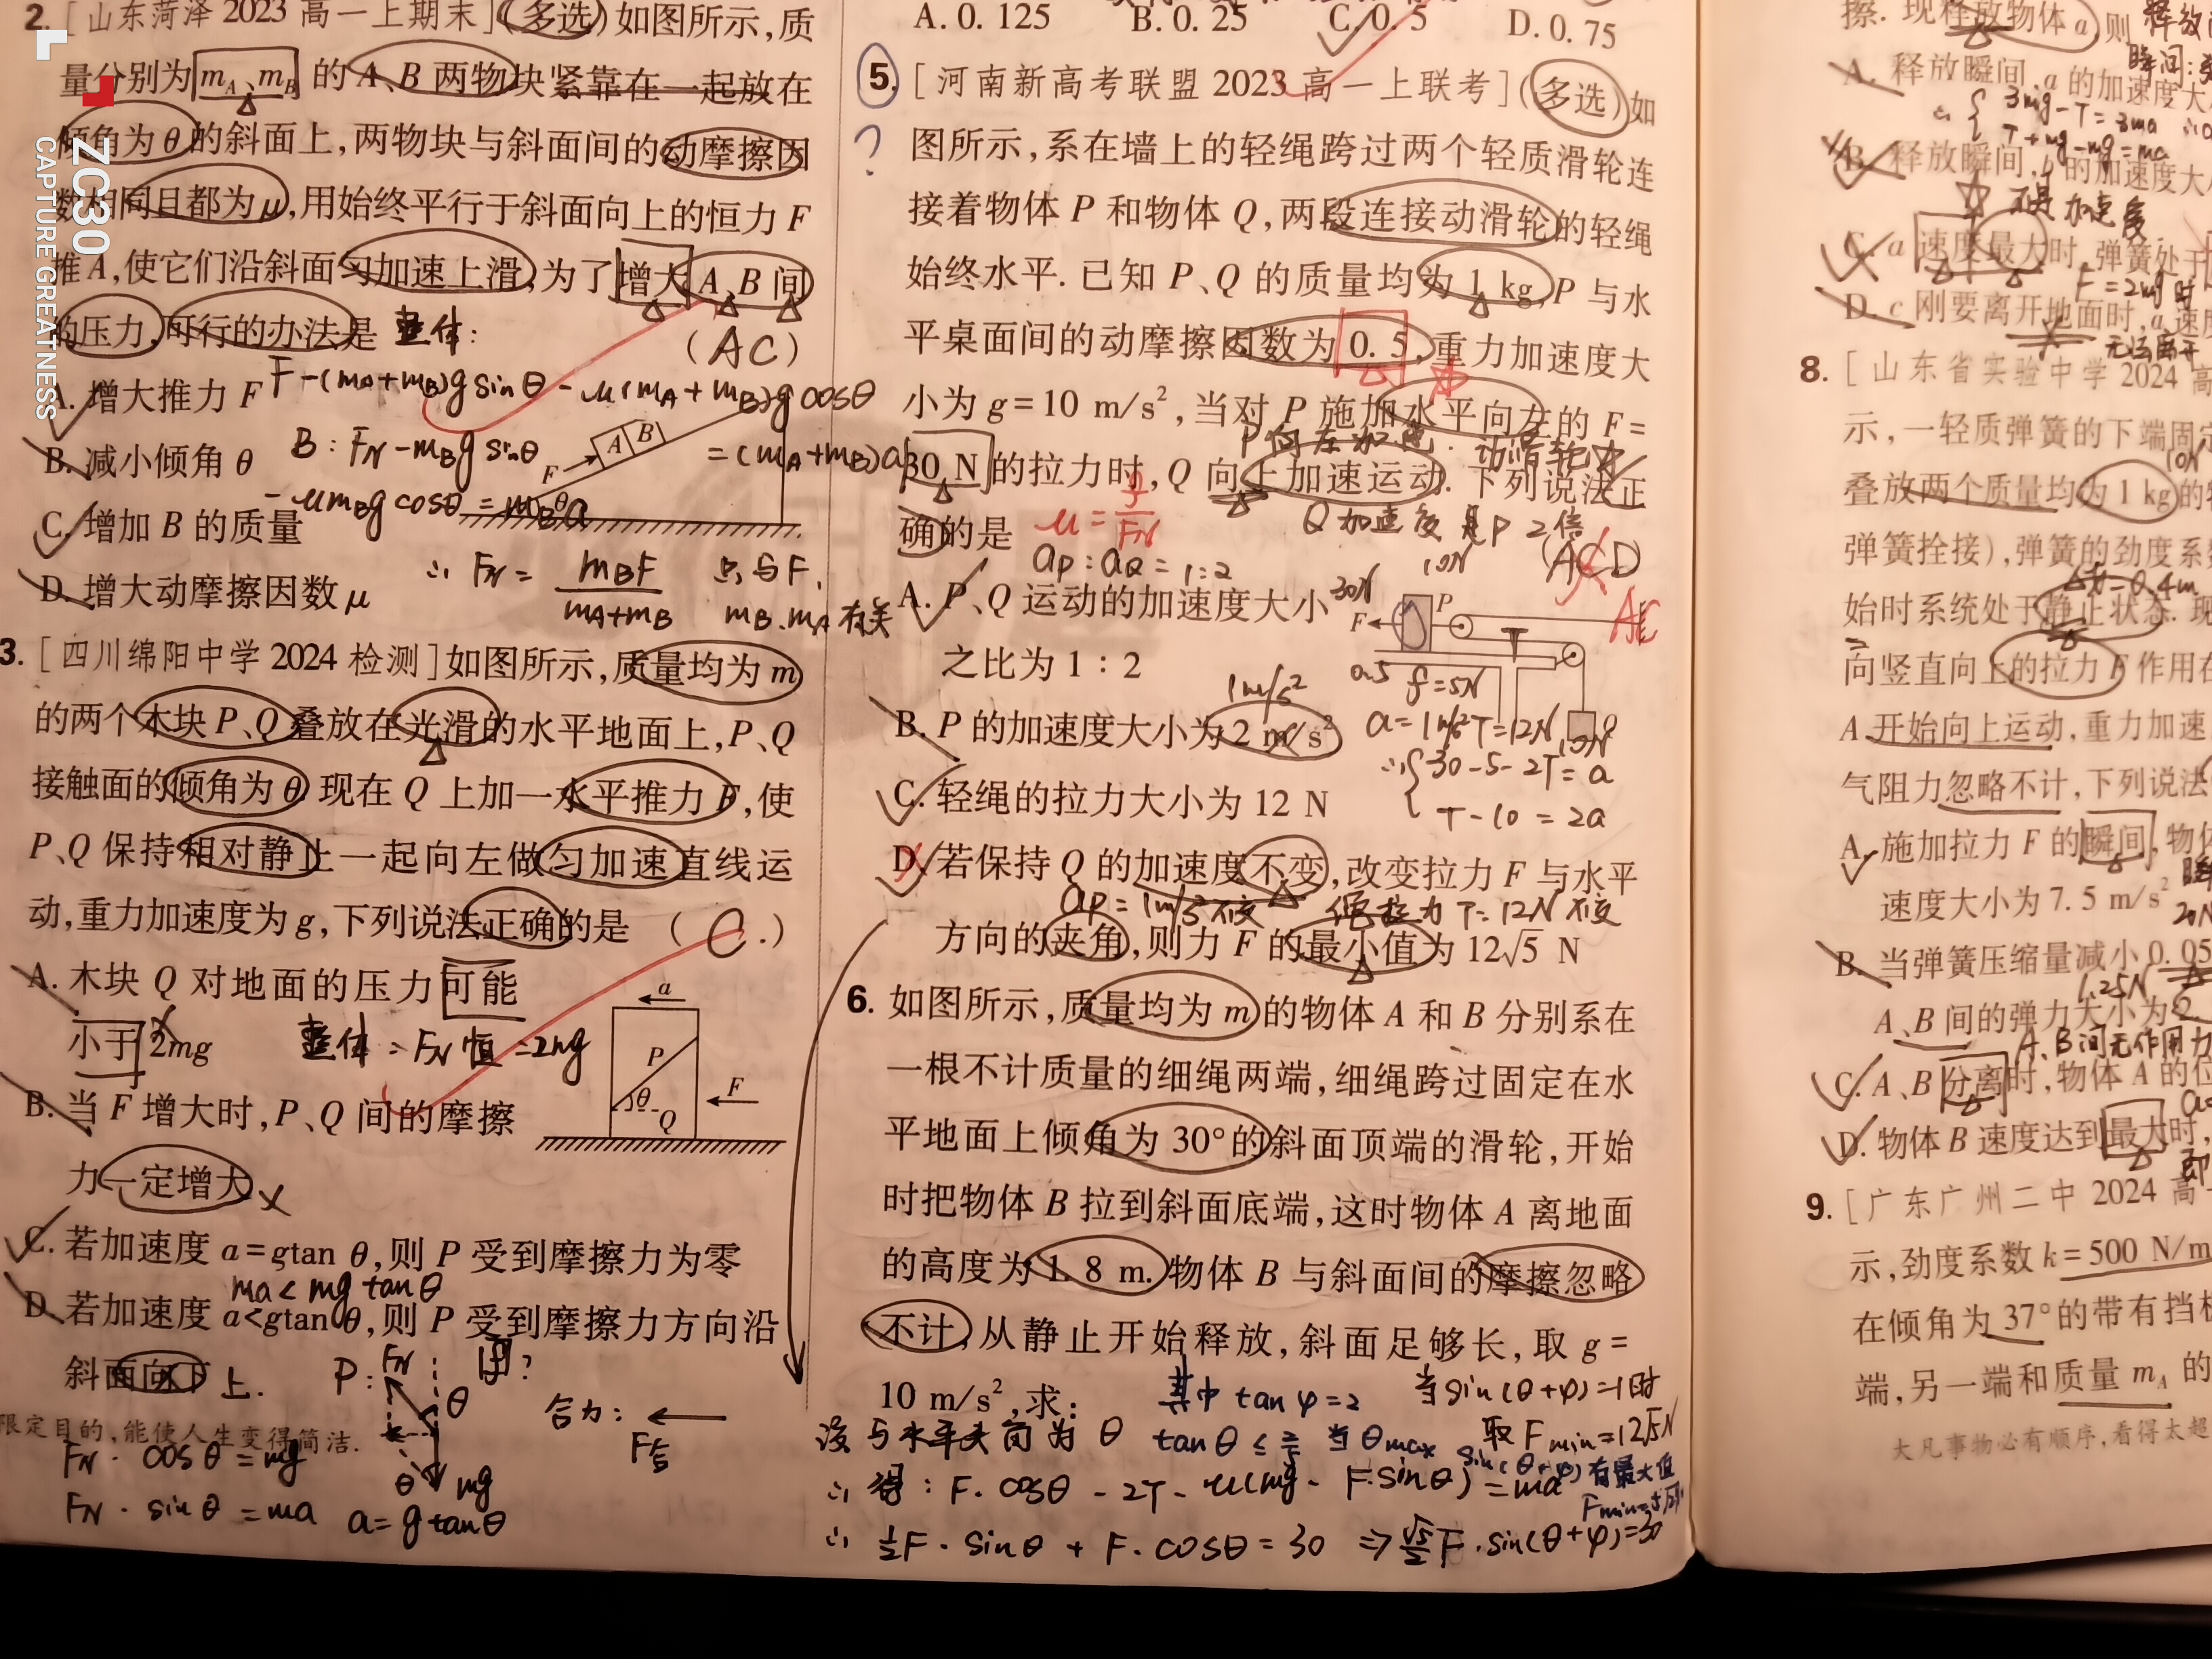 2. [山东菏泽 2023 高一上期末](多选)如图所示,质
量分别为 mA、mB 的 A、B 两物块紧靠在一起放在
倾角为 θ 的斜面上,两物块与斜面间的动摩擦因
数相同且都为 μ,用始终平行于斜面向上的恒力 F
推 A,使它们沿斜面匀加速上滑,为了增大 A、B 间
的压力,可行的办法是 (AC)
整体:
F-(mA+mB)g sinθ-μ(mA+mB)g cosθ
=(mA+mB)a
A. 增大推力 F
B. 减小倾角 θ
B: FN-mBg sinθ
-μmBg cosθ=mBa
C. 增加 B 的质量
D. 增大动摩擦因数 μ
∴ FN = mBF/(mA+mB)
只与 F.
mB.mA有关
F A B θ
3. [四川绵阳中学 2024 检测]如图所示,质量均为 m
的两个木块 P、Q 叠放在光滑的水平地面上,P、Q
接触面的倾角为 θ,现在 Q 上加一水平推力 F,使
P、Q 保持相对静止一起向左做匀加速直线运
动,重力加速度为 g,下列说法正确的是 (C.)
a P θ Q F
A. 木块 Q 对地面的压力可能
小于 2mg
整体: FN恒=2mg
B. 当 F 增大时,P、Q 间的摩擦
力一定增大 ×
C. 若加速度 a=gtan θ,则 P 受到摩擦力为零
ma<mg tanθ
D. 若加速度 a<gtan θ,则 P 受到摩擦力方向沿
斜面向上.
P: FN θ mg
合力: ← F合
FN·cosθ=mg
FN·sinθ=ma a=g tanθ
限定目的,能使人生变得简洁.
A. 0. 125 B. 0. 25 C. 0. 5 D. 0. 75
5. [河南新高考联盟 2023 高一上联考](多选)如
图所示,系在墙上的轻绳跨过两个轻质滑轮连
接着物体 P 和物体 Q,两段连接动滑轮的轻绳
始终水平. 已知 P、Q 的质量均为 1 kg,P 与水
平桌面间的动摩擦因数为 0. 5,重力加速度大
小为 g=10 m/s²,当对 P 施加水平向左的 F=
30 N 的拉力时,Q 向上加速运动. 下列说法正
确的是 (ACD)
AC
aP:aQ=1:2
Q加速度是P 2倍
A. P、Q 运动的加速度大小
之比为 1 : 2
B. P 的加速度大小为 2 m/s²
1m/s²
C. 轻绳的拉力大小为 12 N
D. 若保持 Q 的加速度不变,改变拉力 F 与水平
方向的夹角,则力 F 的最小值为 12√5 N
F P T 10N
f=5N
a=1m/s² T=12N
∴{30-5-2T=a
T-10=2a
6. 如图所示,质量均为 m 的物体 A 和 B 分别系在
一根不计质量的细绳两端,细绳跨过固定在水
平地面上倾角为 30°的斜面顶端的滑轮,开始
时把物体 B 拉到斜面底端,这时物体 A 离地面
的高度为 1. 8 m. 物体 B 与斜面间的摩擦忽略
不计,从静止开始释放,斜面足够长,取 g=
10 m/s²,求:
设与水平夹角为 θ
其中 tanφ=2
当 sin(θ+φ)=1时
取 Fmin=12√5N
∴ 得: F·cosθ-2T-μ(mg-F·sinθ)=ma
∴ ½F·sinθ+F·cosθ=30 ⇒ √5/2 F·sin(θ+φ)=30
8. [山东省实验中学 2024 高
示,一轻质弹簧的下端固定
叠放两个质量均为 1 kg 的
弹簧拴接),弹簧的劲度系数
始时系统处于静止状态. 现
向竖直向上的拉力 F 作用在
A 开始向上运动,重力加速
气阻力忽略不计,下列说法
A. 施加拉力 F 的瞬间,物体
速度大小为 7. 5 m/s²
B. 当弹簧压缩量减小 0. 05
A、B 间的弹力大小为
C. A、B 分离时,物体 A 的位
D. 物体 B 速度达到最大时,
A、B间无作用力
9. [广东广州二中 2024 高
示,劲度系数 k=500 N/m
在倾角为 37°的带有挡板
端,另一端和质量 mA 的
大凡事物必有顺序,看得太超
擦. 现释放物体 a,则
A. 释放瞬间 a 的加速度大
B. 释放瞬间,b 的加速度大
C. a 速度最大时,弹簧处于
D. c 刚要离开地面时,a 速度
3mg-T=3ma
T+mg-mg=ma
ZC30
CAPTURE GREATNESS